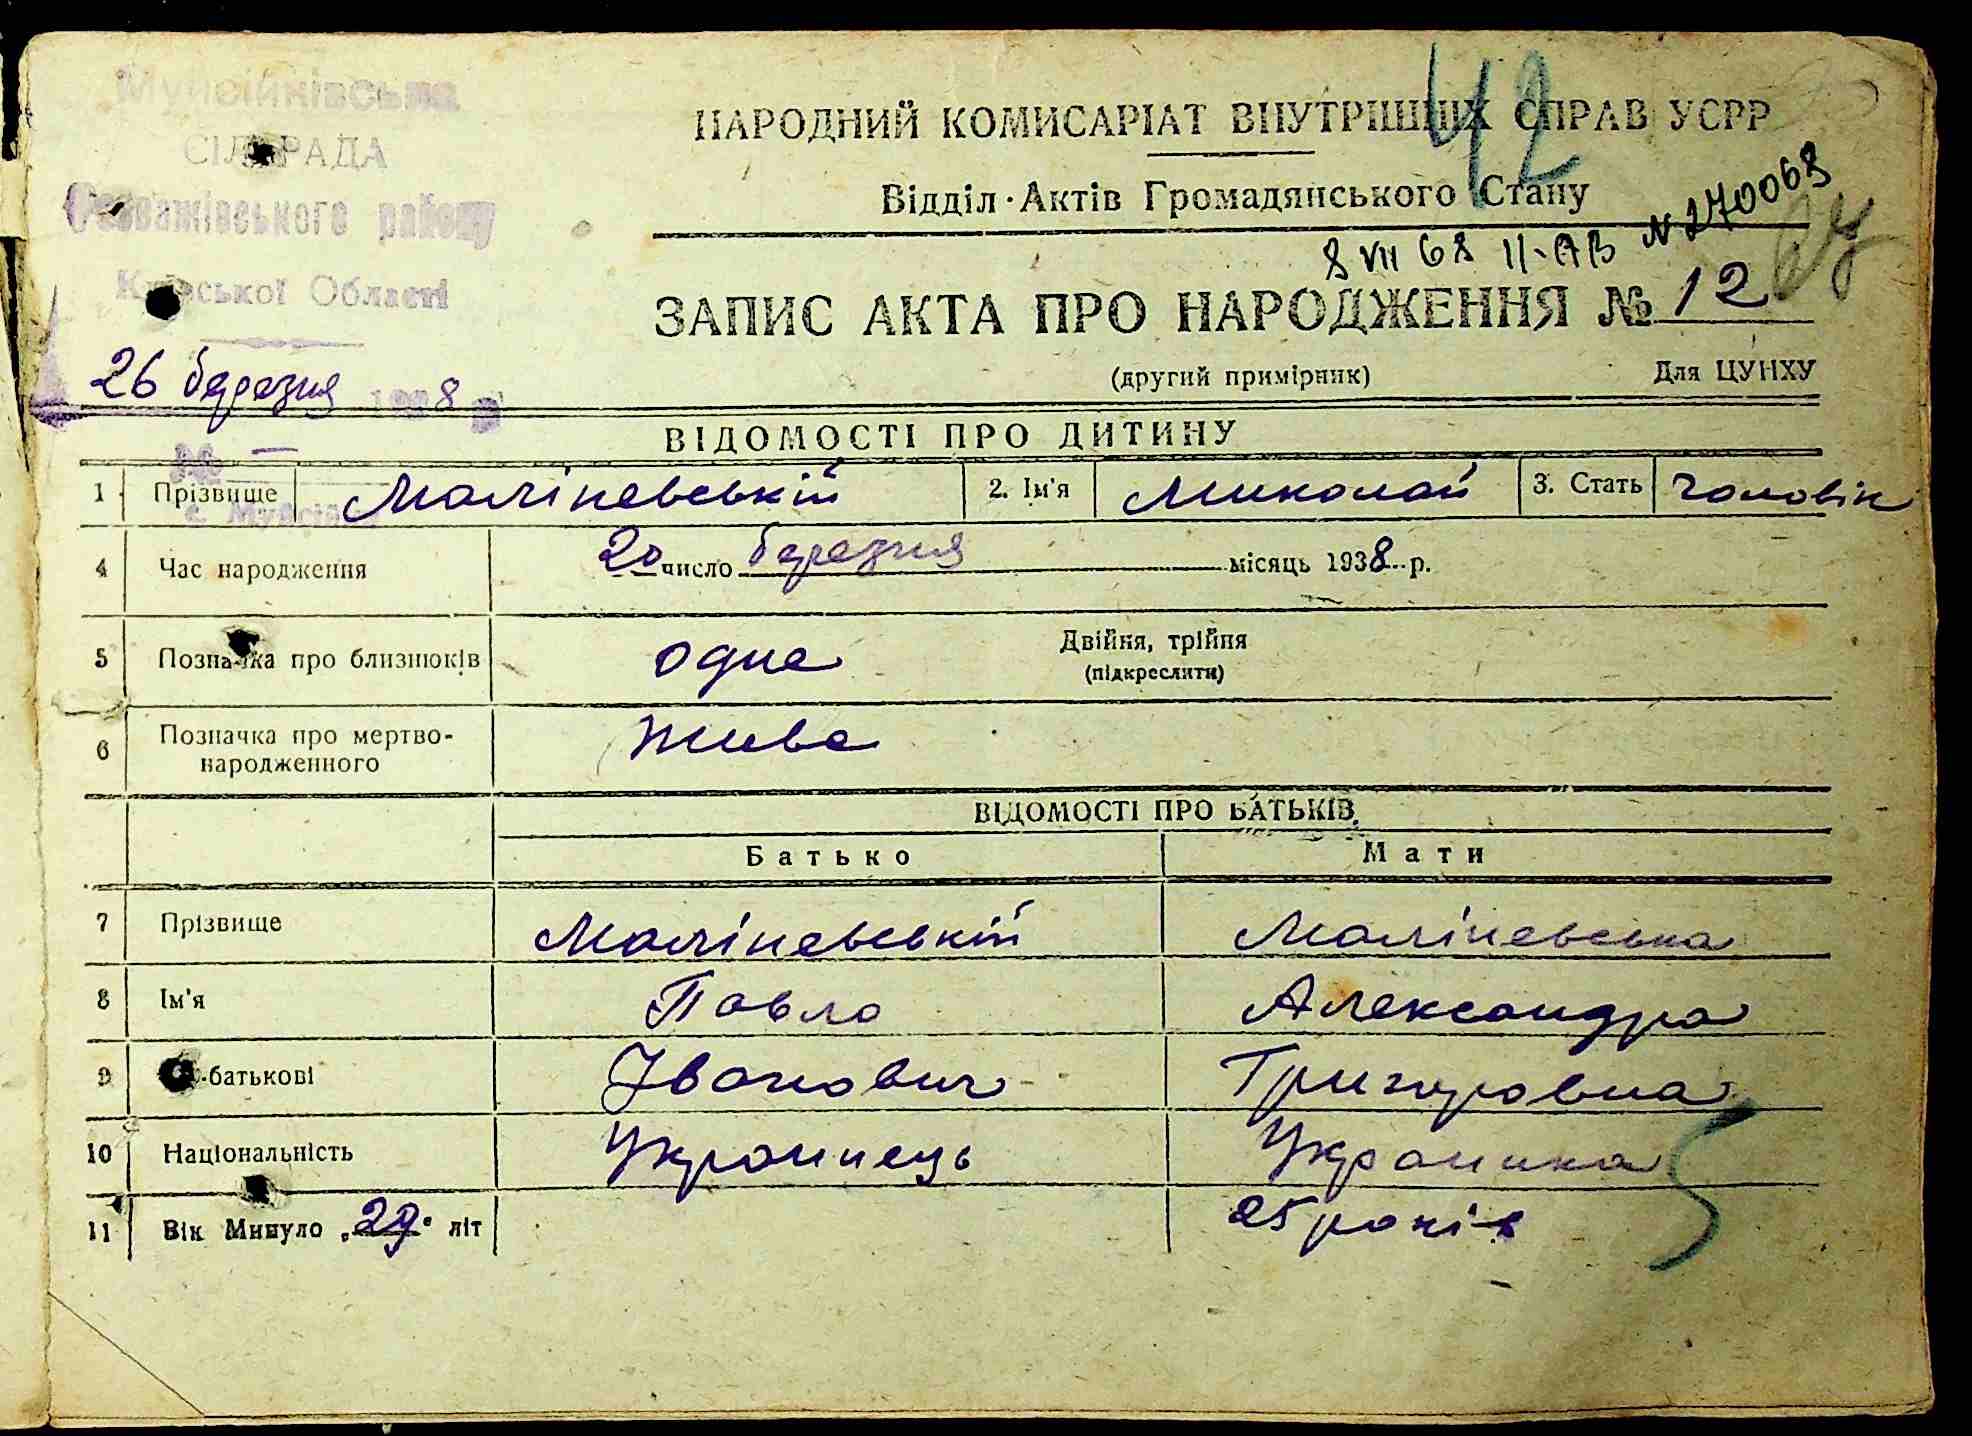 Мусійківська
СІЛЬРАДА
Розважівського району
Київської Області
26 березня 1938 р
НАРОДНИЙ КОМИСАРІАТ ВНУТРІШНІХ СПРАВ УСРР
42
Відділ Актів Громадянського Стану
8 VII 68 II-АВ N 270068
ЗАПИС АКТА ПРО НАРОДЖЕННЯ № 12
(другий примірник) Для ЦУНХУ
ВІДОМОСТІ ПРО ДИТИНУ
1 Прізвище Маліневській 2. Ім'я Миколай 3. Стать чоловік
4 Час народження 20 число березня місяць 1938 р.
5 Позначка про близнюків одне Двійня, трійня
(підкреслити)
6 Позначка про мертво-
народженного живе
ВІДОМОСТІ ПРО БАТЬКІВ
Батько Мати
7 Прізвище Маліневській Маліневська
8 Ім'я Павло Александра
9 батькові Іванович Григоровна
10 Національність Украинець Украинка
11 Вік Минуло 29 літ 25 років